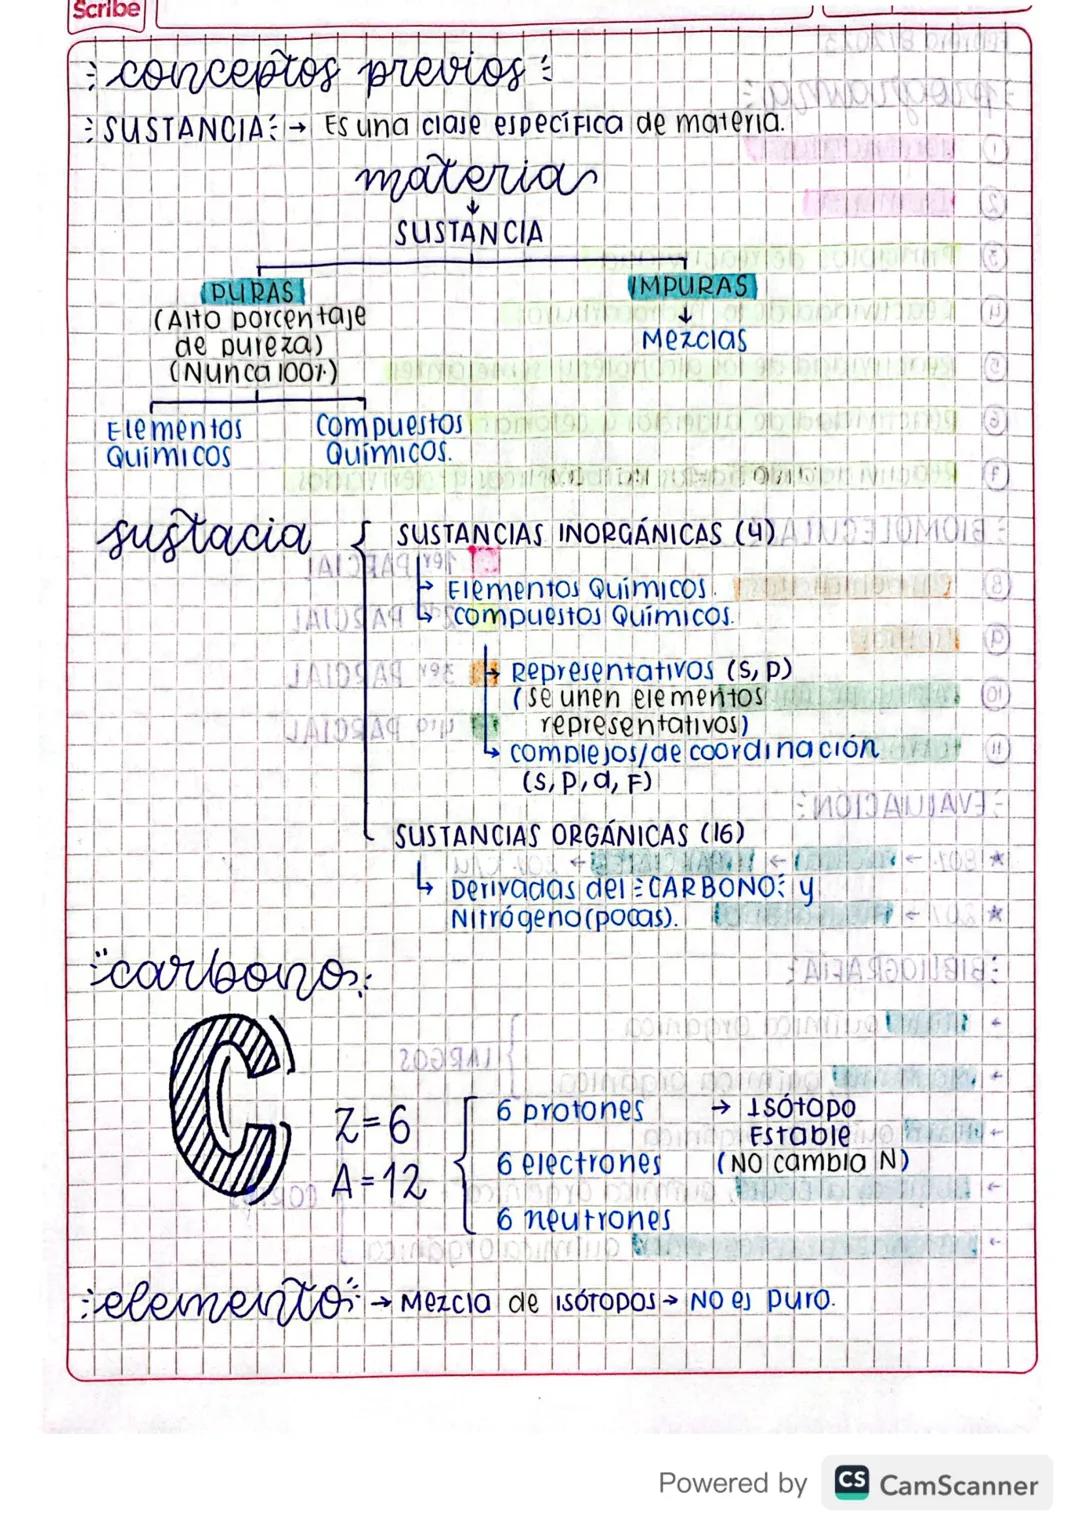 Scribe
conceptos previos
SUSTANCIA: → Es una clase específica de materia.
materia
↓
SUSTANCIA
PURAS
IMPURAS
(Alto porcentaje
de pureza)
(Nunca 100%)
↓
Mezclas
Elementos
Químicos
Compuestos
Químicos.
sustacia
SUSTANCIAS INORGÁNICAS (4)
Elementos Químicos.
compuestos Químicos.
→ Representativos (s, p)
(se unen elementos
representativos)
complejos/de coordinación
(s, p, d, F)
SUSTANCIAS ORGÁNICAS (16)
Derivadas del CARBONO y
Nitrógeno (pocas).
carbono
C
Z=6
A=12
6 protones
6 electrones
6 neutrones
→ Isótopo
Estable
(NO cambia N)
elemento → Mezcla de isótopos → NO es puro.
Powered by CS CamScanner